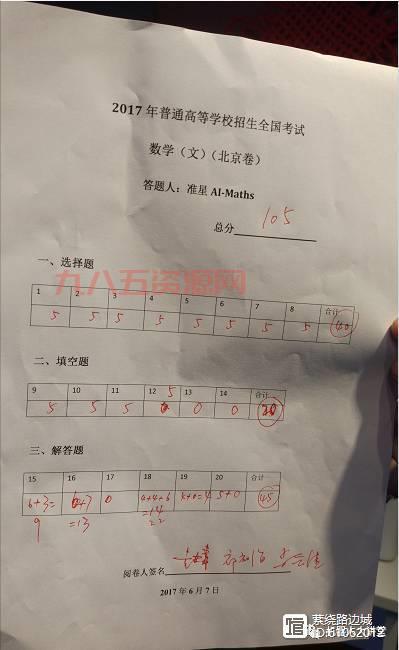 2017年普通高等学校招生全国考试
数学（文）（北京卷）
答题人：准星 AI-Maths
总分 105
一、选择题
九八五资源网
1 2 3 4 5 6 7 8 合计
5 5 5 5 5 5 5 5 40
二、填空题
9 10 11 12 13 14 合计
5
5 5 5 0 0 20
三、解答题
15 16 17 18 19 20 合计
6+3= +3 0 4+4+6 +0=4 5+0 45
9 =13 =14
22
阅卷人签名
2017年6月7日
萋绕路边城
ID:61052012